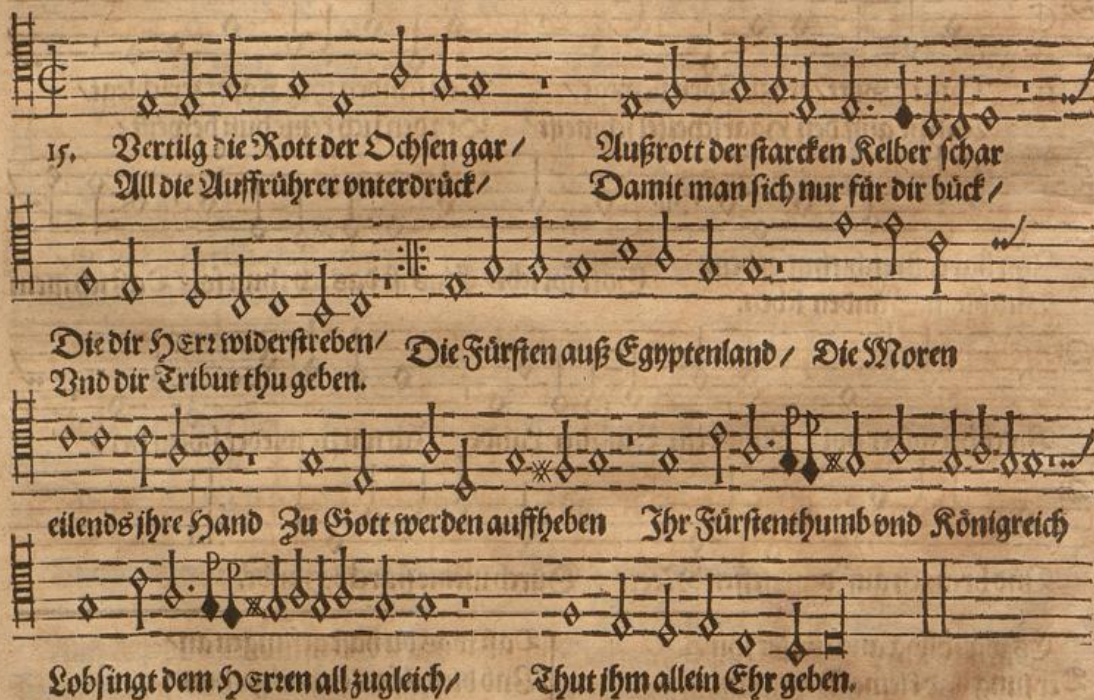 15. Vertilg die Rott der Ochsen gar / Außrott der starcken Kelber schar
All die Auffrührer vnterdrück / Damit man sich nur für dir bück /
Die dir HErr widerstreben / Die Fürsten auß Egyptenland / Die Moren
Vnd dir Tribut thu geben.
eilends jhre Hand Zu Gott werden auffheben Jhr Fürstenthumb vnd Königreich
Lobsingt dem HErren all zugleich / Thut jhm allein Ehr geben.